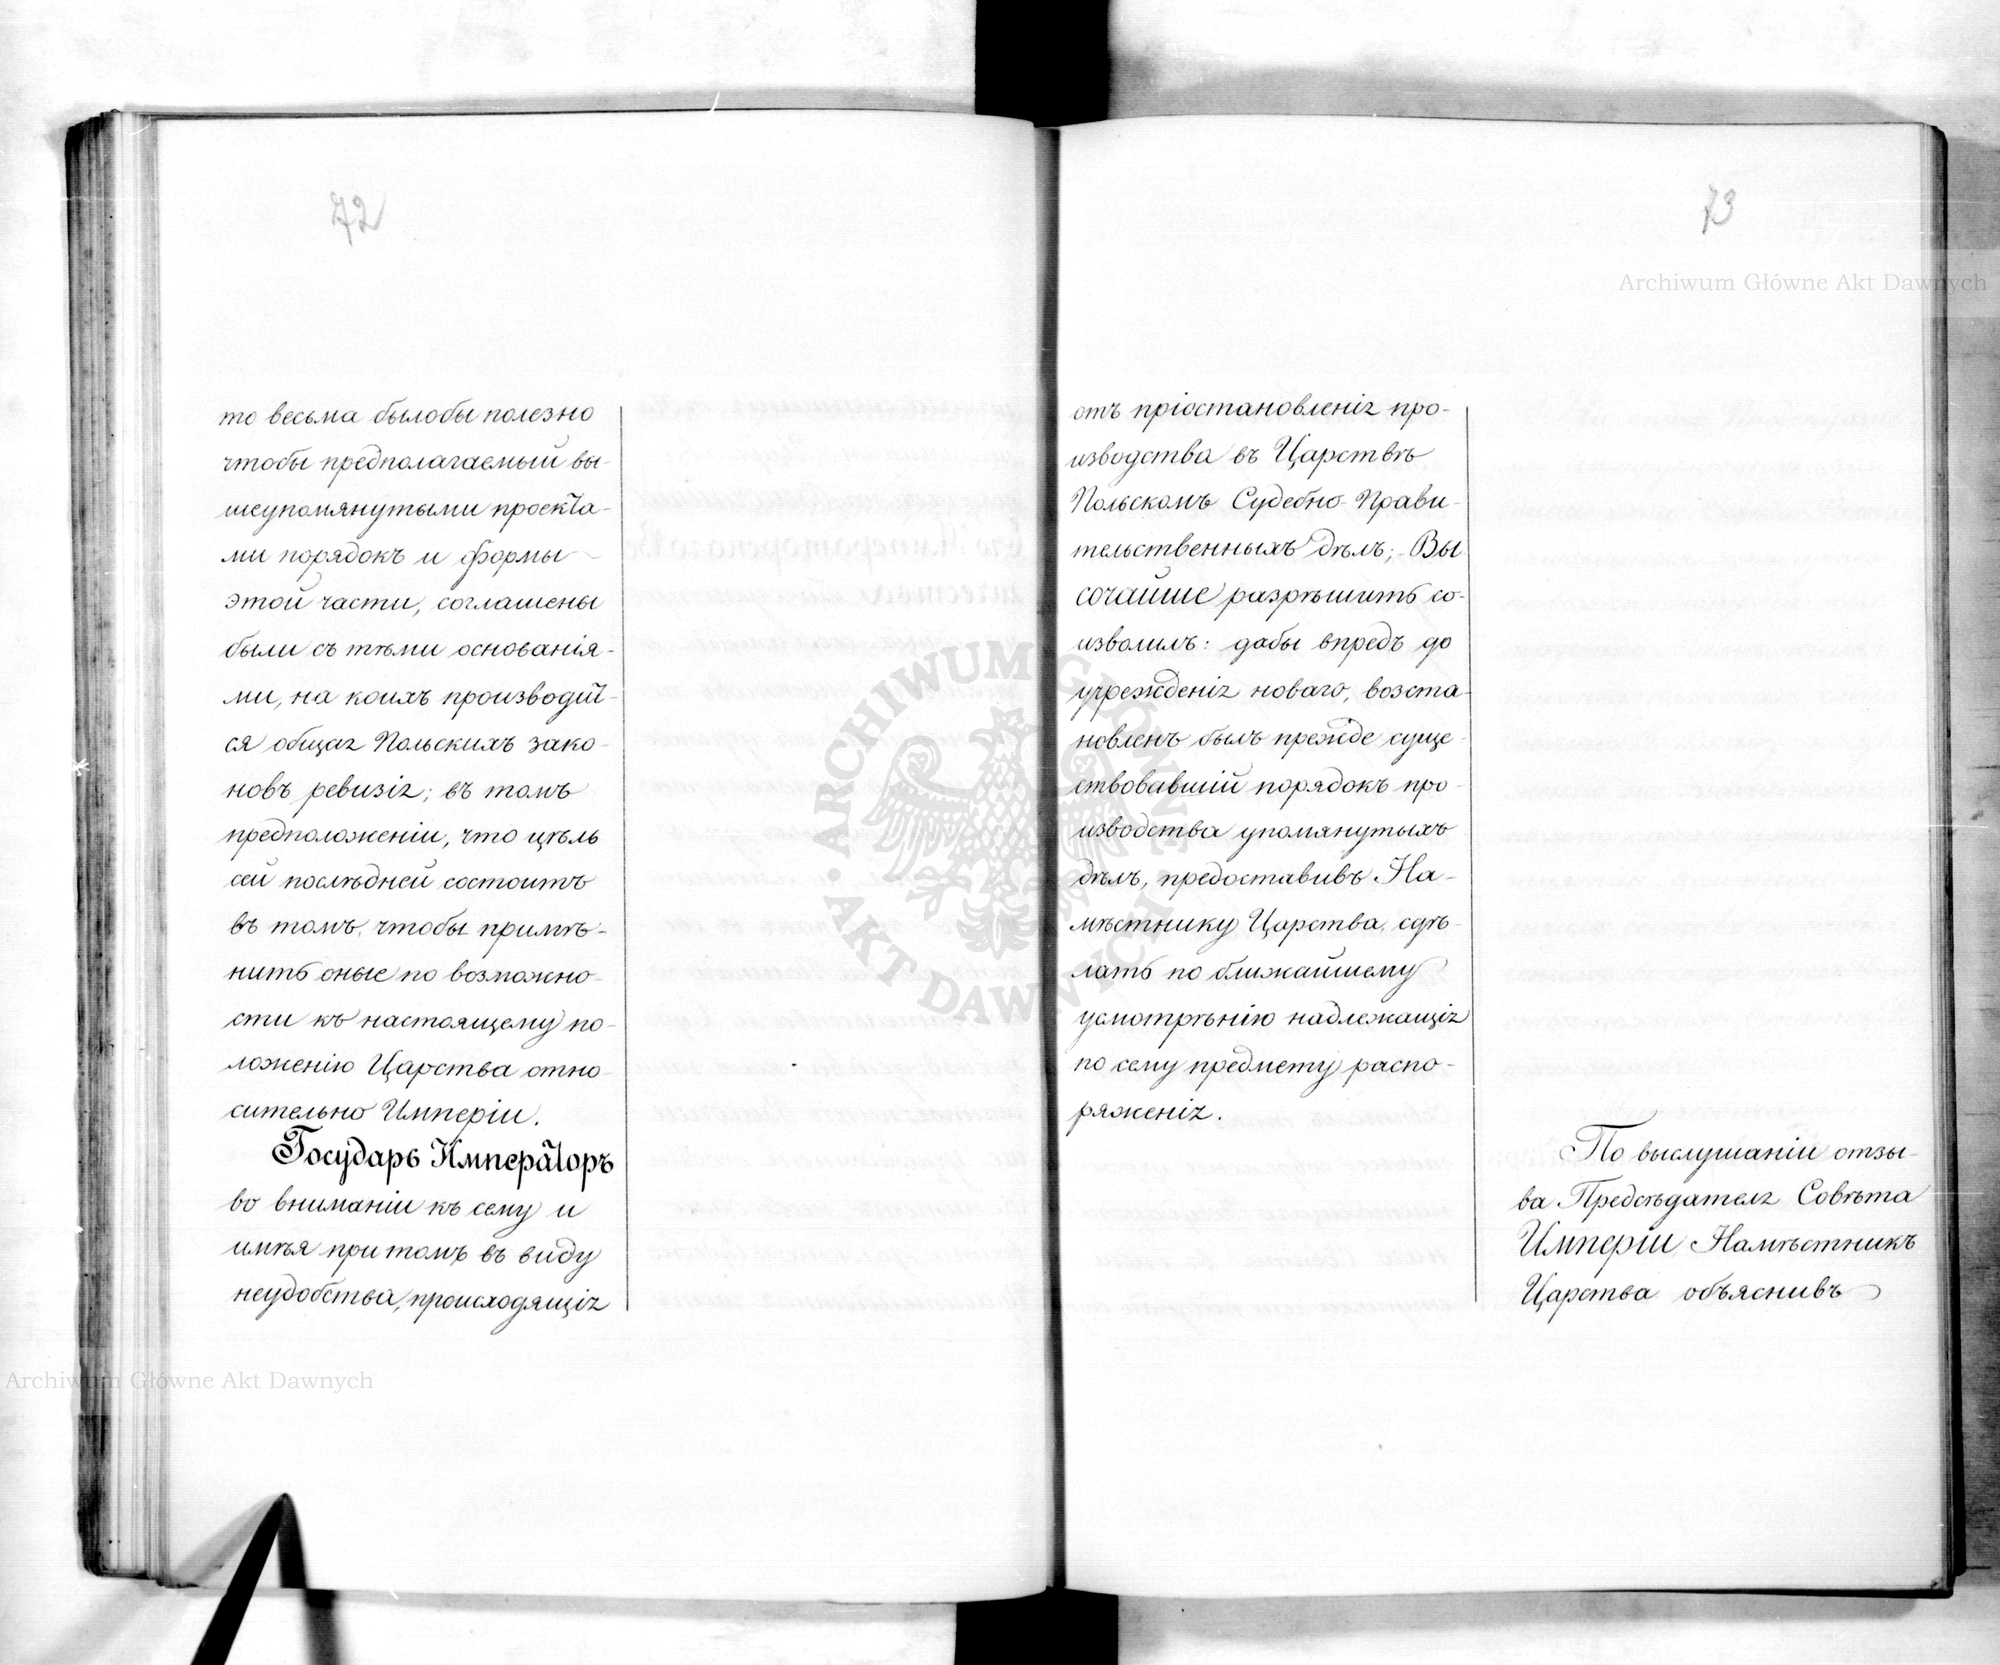 72
то весьма былобы полезно
чтобы предполагаемый вы-
шеупомянутыми проекта-
ми порядокъ и формы
этой части, соглашены
были съ тѣми основанія-
ми, на коихъ производит-
ся общая Польскихъ зако-
новъ ревизія; въ томъ
предположеніи, что цѣль
сей послѣдней состоитъ
въ томъ, чтобы примѣ-
нить оные по возможно-
сти къ настоящему по-
ложенію Царства отно-
сительно Имперіи.
Государь Императоръ
во вниманіи къ сему и
имѣя при томъ въ виду
неудобства, происходящія
73
отъ пріостановленія про-
изводства въ Царствѣ
Польскомъ Судебно-Прави-
тельственныхъ дѣлъ; Вы-
сочайше разрѣшить со-
изволилъ: дабы впредь до
учрежденія новаго, возста-
новленъ былъ прежде суще-
ствовавшій порядокъ про-
изводства упомянутыхъ
дѣлъ, предоставивъ На-
мѣстнику Царства, сдѣ-
лать по ближайшему
усмотрѣнію надлежащія
по сему предмету распо-
ряженія.
По выслушаніи отзы-
ва Предсѣдателя Совѣта
Имперіи Намѣстникъ
Царства объяснивъ
Archiwum Główne Akt Dawnych
ARCHIWUM GŁÓWNE
AKT DAWNYCH
Archiwum Główne Akt Dawnych